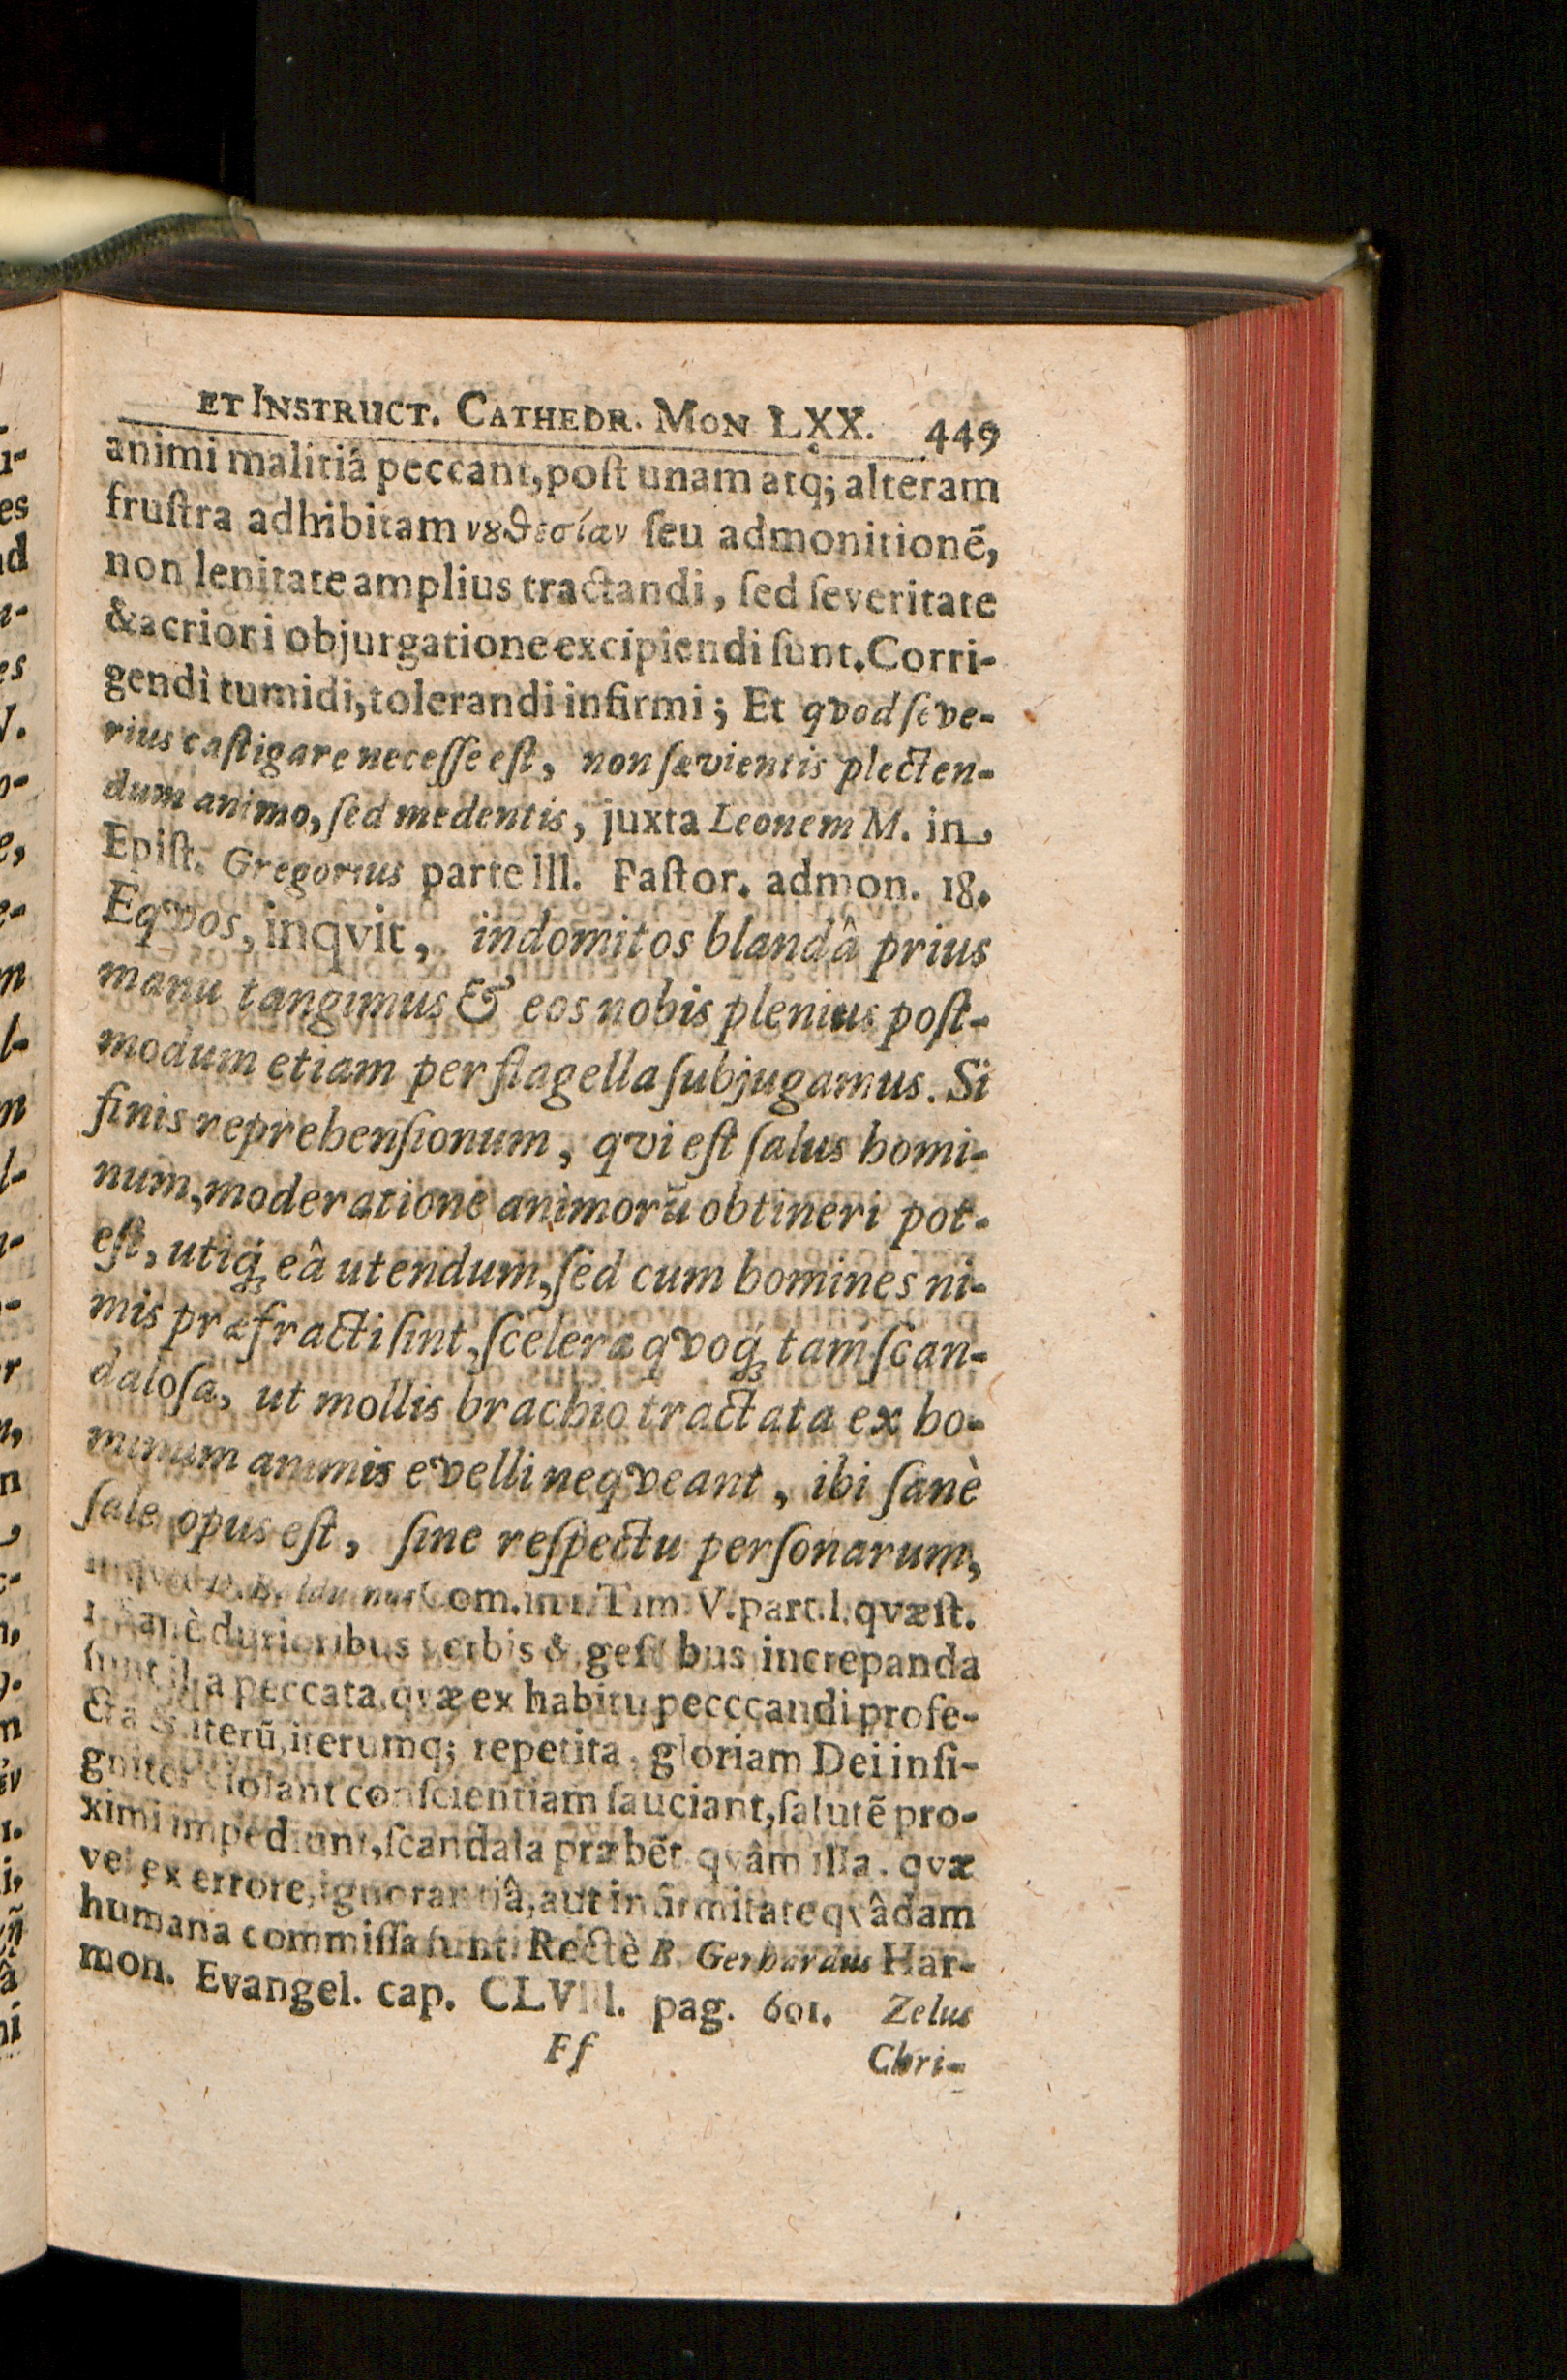 ET INSTRUCT. CATHEDR. MON LXX. 449
animi malitiâ peccant, poſt unam atq; alteram
fruſtra adhibitam νȣθεσίαν ſeu admonitionē,
non lenitate amplius tractandi, ſed ſeveritate
& acriori objurgatione excipiendi ſunt. Corri-
gendi tumidi, tolerandi infirmi; Et qvod ſeve-
rius caſtigare neceſſe eſt, non ſævientis plecten-
dum animo, ſed medentis, juxta Leonem M. in
Epiſt. Gregorius parte III. Paſtor. admon. 18.
Eqvos, inqvit, indomitos blandâ prius
manu tangimus & eos nobis plenius poſt-
modum etiam per flagella ſubjugamus. Si
finis reprehenſionum, qvi eſt ſalus homi-
num, moderatione animorū obtineri pot-
eſt, utiq; eâ utendum, ſed cum homines ni-
mis præfracti ſint, ſcelera qvoq; tam ſcan-
daloſa, ut mollis brachio tractata ex ho-
minum animis evelli neqveant, ibi ſanè
ſale opus eſt, ſine reſpectu perſonarum,
D. Balduinus Com. in 1. Tim. V. part. I. qvæſt.
1. Sanè durioribus verbis & geſtibus increpanda
ſunt illa peccata, qvæ ex habitu pecccandi profe-
cta & iterū, iterumq; repetita, gloriam Dei inſi-
gniter violant conſcientiam ſauciant, ſalutē pro-
ximi impediunt, ſcandala præbēt qvâm illa. qvæ
vel ex errore, ignorantiâ, aut infirmitate qvâdam
humana commiſſa ſunt. Rectè B. Gerhardus Har-
mon. Evangel. cap. CLVIII. pag. 601. Zelus
Ff Chri-
es